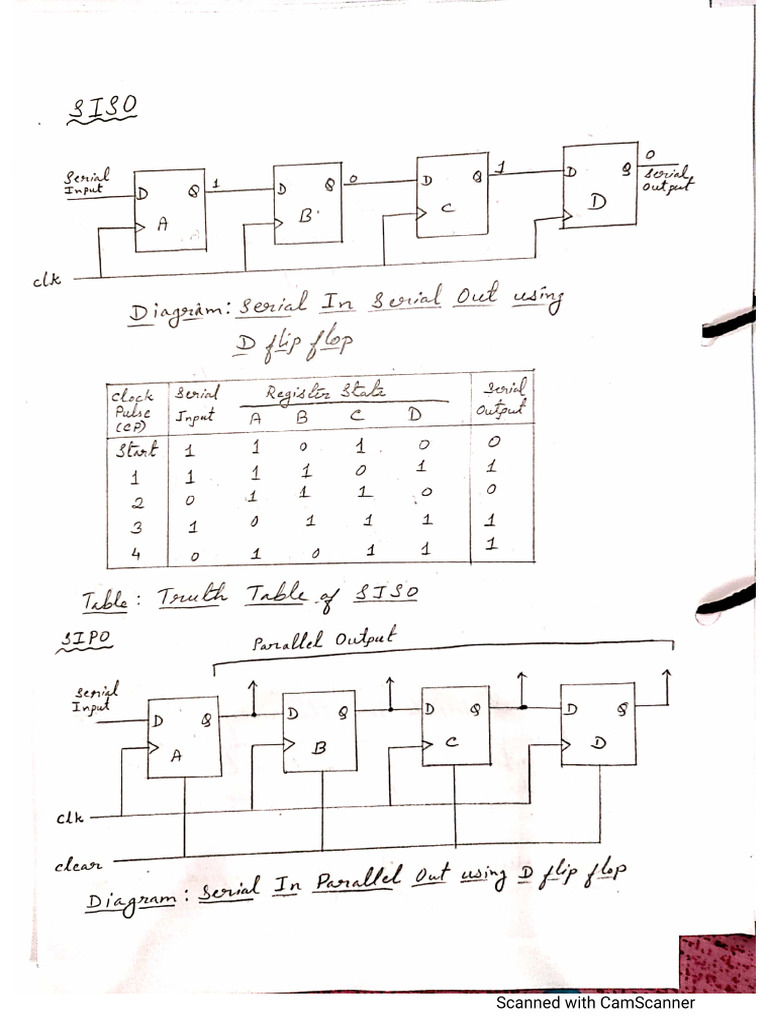 SISO
Serial Input D Q 1 D Q 0 D Q 1 D Q 0 Serial Output
A B C D
clk
Diagram: Serial In Serial Out using
D flip flop
Clock Pulse (CP) Serial Input Register State Serial Output
A B C D
Start 1 1 0 1 0 0
1 1 1 1 0 1 1
2 0 1 1 1 0 0
3 1 0 1 1 1 1
4 0 1 0 1 1 1
Table: Truth Table of SISO
SIPO
Parallel Output
Serial Input D Q D Q D Q D Q
A B C D
clk
clear
Diagram: Serial In Parallel Out using D flip flop
Scanned with CamScanner